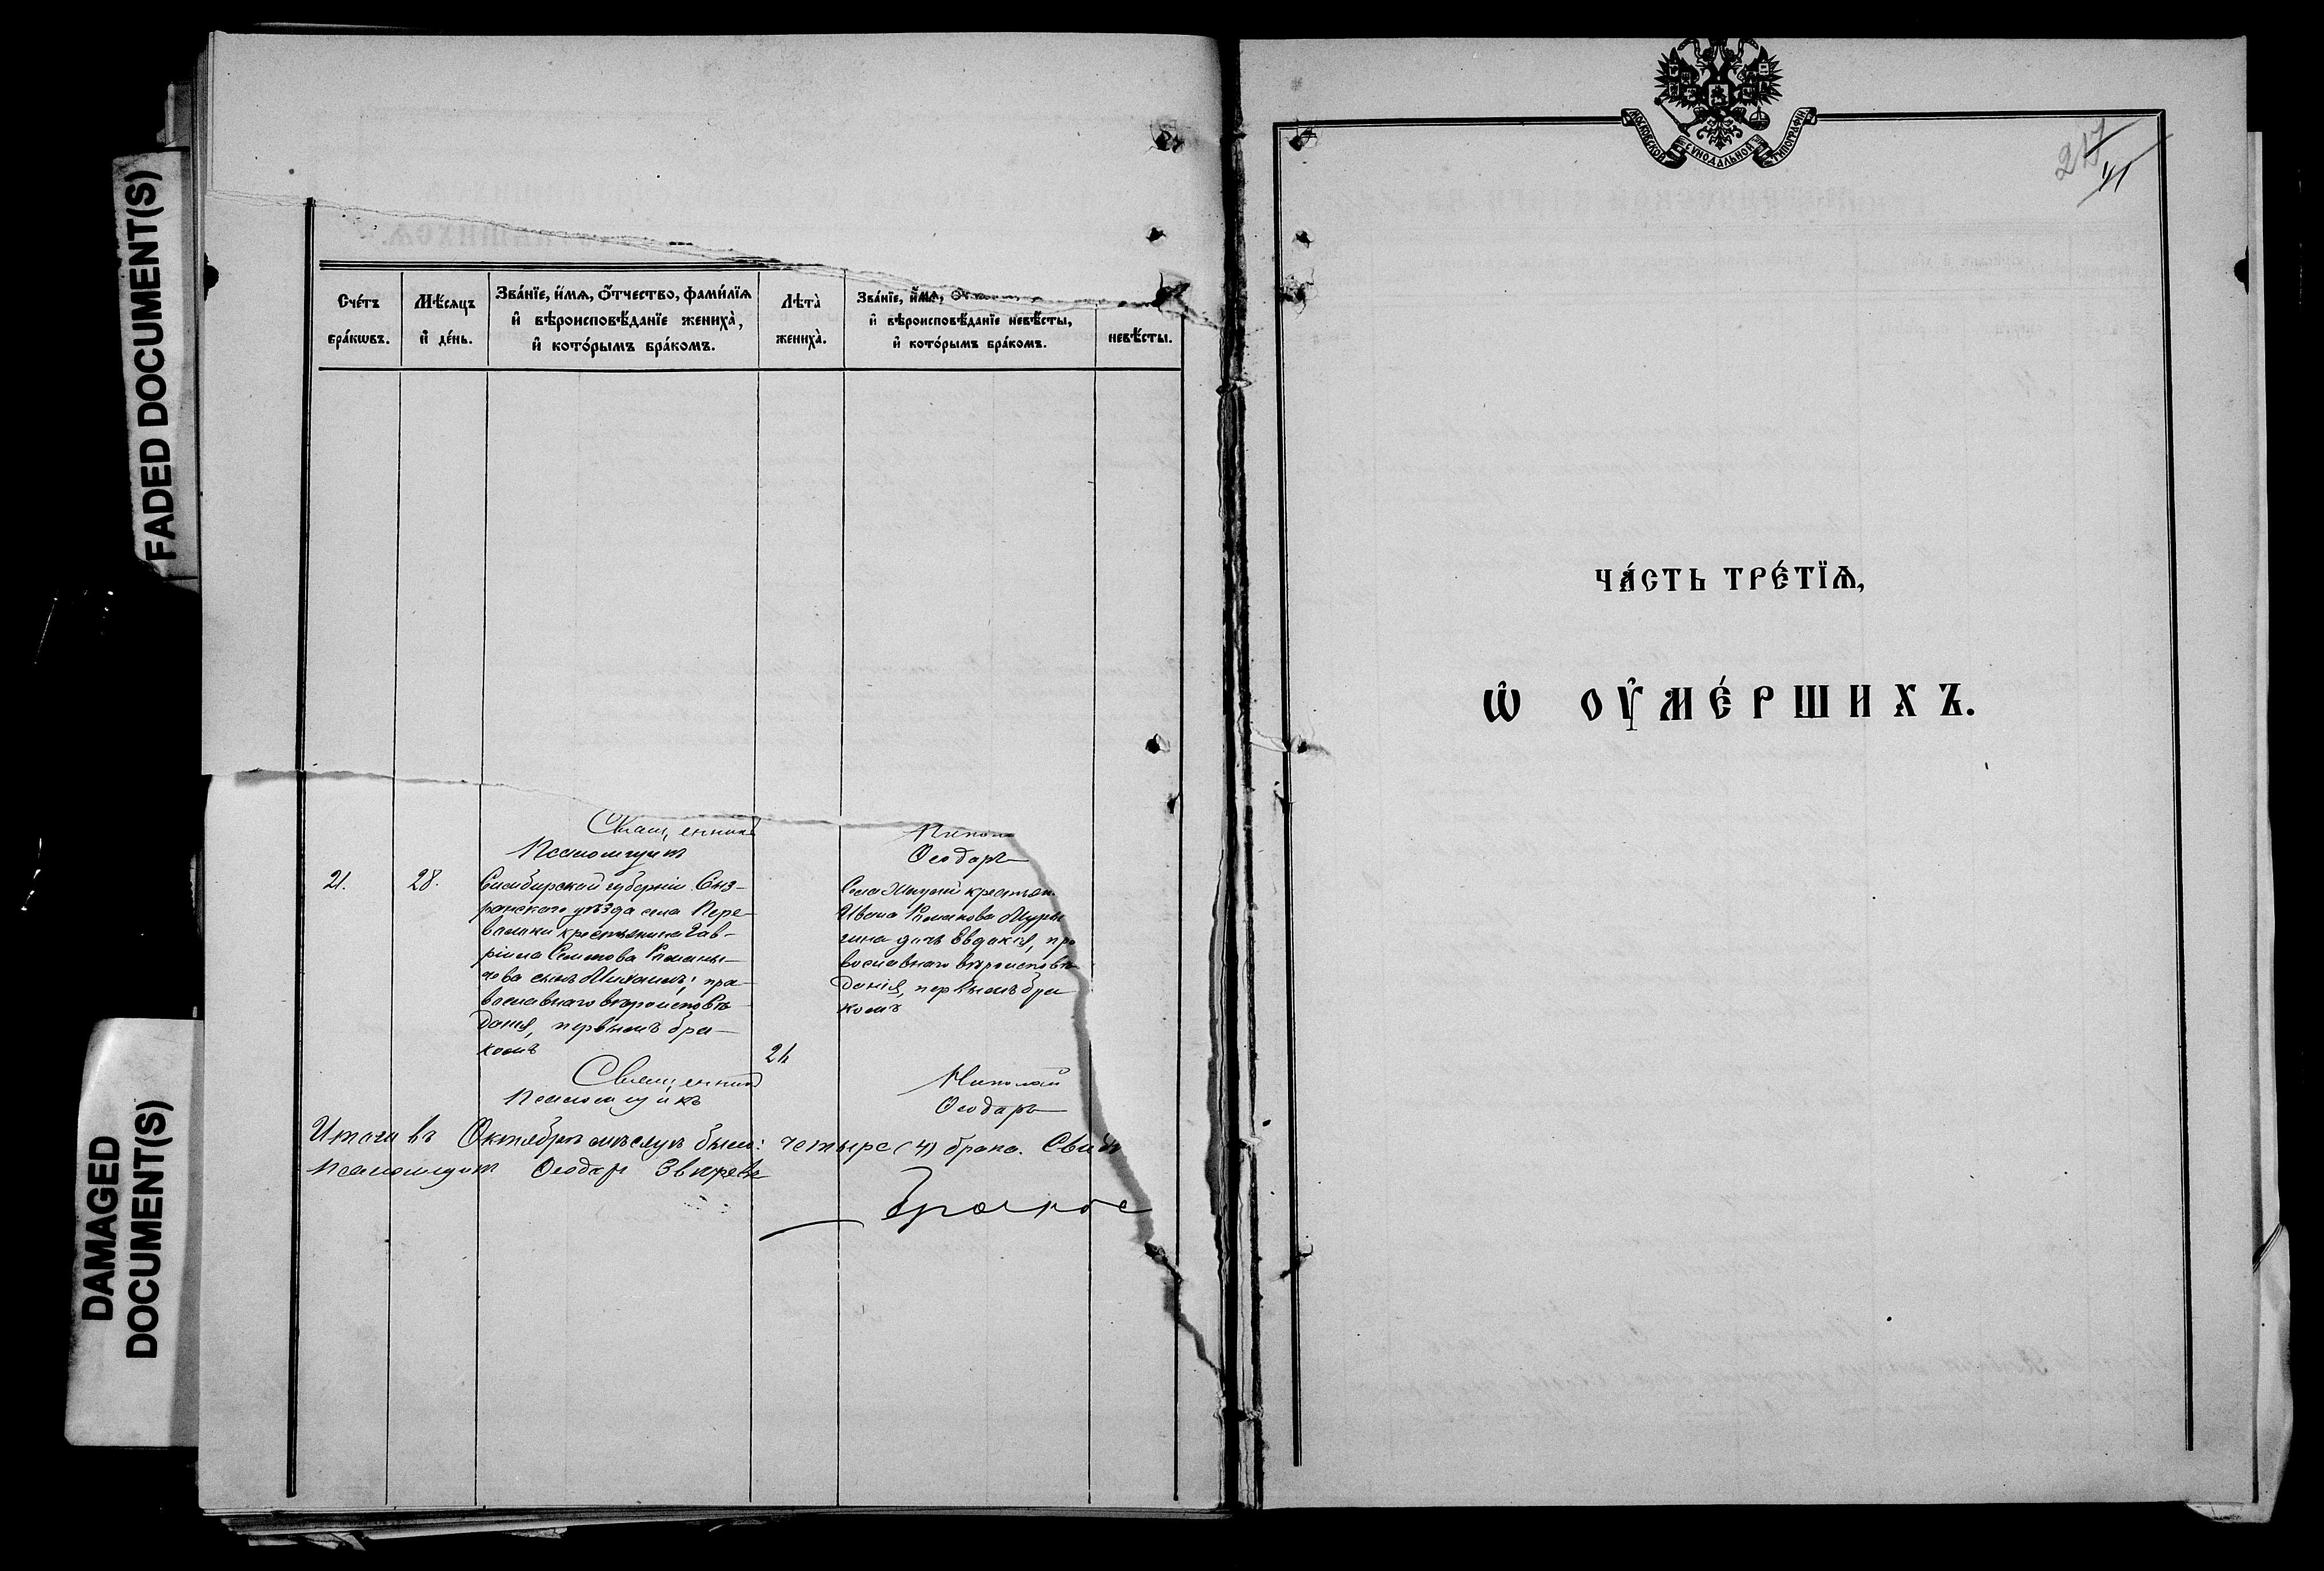 FADED DOCUMENT(S)
DAMAGED
DOCUMENT(S)
Сче́тъ
бра́кѡвъ.
Мѣ́сяцъ
и҆ де́нь.
Зва́нїе, и҆́мѧ, ѻ҆́тчество, фами́лїѧ
и҆ вѣроисповѣ́данїе жениха̀,
и҆ кото́рымъ бра́комъ.
Лѣта̀
жениха̀.
Зва́нїе, и҆́мѧ,
и҆ вѣроисповѣ́данїе невѣ́сты,
и҆ кото́рымъ бра́комъ.
невѣ́сты.
Священникъ
Псаломщикъ
Ѳеодоръ
21.
28.
Симбирской губерніи Сыз-
ранскаго уѣзда села Пере-
волоки крестьянина Гав-
ріила Семенова
сынъ Михаилъ, пра-
вославнаго вѣроисповѣ-
данія, первымъ бра-
комъ
Села крестьян.
Ивана
дочь Евдокія, пра
вославнаго вѣроисповѣ
данія, первымъ бра
комъ
Священникъ
Николай
Псаломщикъ
Ѳеодоръ
Итого въ Октябрѣ мѣсяцѣ было: четыре (4) брака.
Псаломщикъ Ѳеодоръ Звѣревъ
МОСКОВСКОЙ СѴНОДАЛЬНОЙ ТИПОГРАФІИ
217
ЧА́СТЬ ТРЕ́ТЇѦ,
Ѡ҆ ОУ҆МЕ́РШИХЪ.